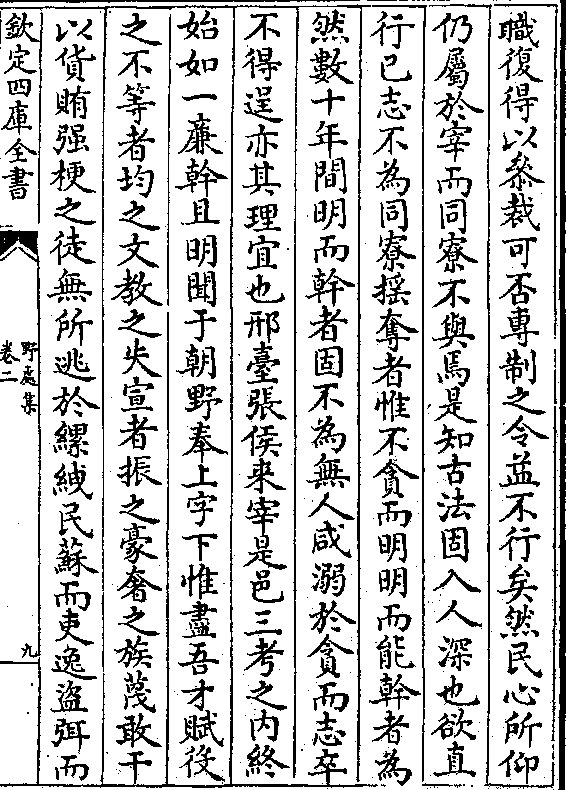 職復得以參裁可否專制之令益不行矣然民心所仰
仍屬於宰而同寮不與焉是知古法固入人深也欲直
行已志不為同寮揺奪者惟不貪而明明而能幹者為
然數十年間明而幹者固不為無人咸溺於貪而志卒
不得逞亦其理宜也邢臺張侯來宰是邑三考之内終
始如一廉幹且明聞于朝野奉上字下惟盡吾才賦役
之不等者均之文教之失宣者振之豪奢之族蔑敢干
以貨賄强梗之徒無所逃於縲絏民蘇而吏逸盜弭而
欽定四庫全書
野處集
卷二
九